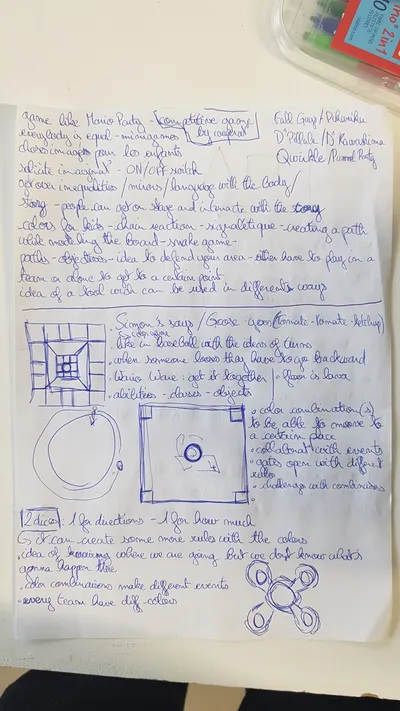 MO® 2in1
game like Mario Party - competitive game
by
Fall Guys / Pikuniku
everybody is equal - minigames
choses imagées pour les enfants
Quirkle / Rummel Party
ON/OFF switch
get over inequalities / mirrors / language with the body /
story - people can get on stage and interact with the story
color for kids - chain reaction - signalétique - creating a path
while modeling the board - snake game -
paths - objectives - idea to defend your area - either have to play in a
team or alone to get to a certain point -
idea of a tool wich can be used in differents ways
. Simon's says / Goose goose (tomate - tomate - ketchup)
like in baseball with the idea of turns
. when someone looses they have to go backward
. Wario Ware : get it together | . floor is lava
. abilities - classes - objects
. color combination(s)
to be able to move to
a certain place
. collaborat° with events
. gates open with different
rules
. challenge with combinaisons
2 dices : 1 for directions - 1 for how much
↳ it can create some more rules with the colors
. idea of knowing where we are going but we don't know what's
gonna happen there
. color combinaisons make different events
. every team have diff. colors